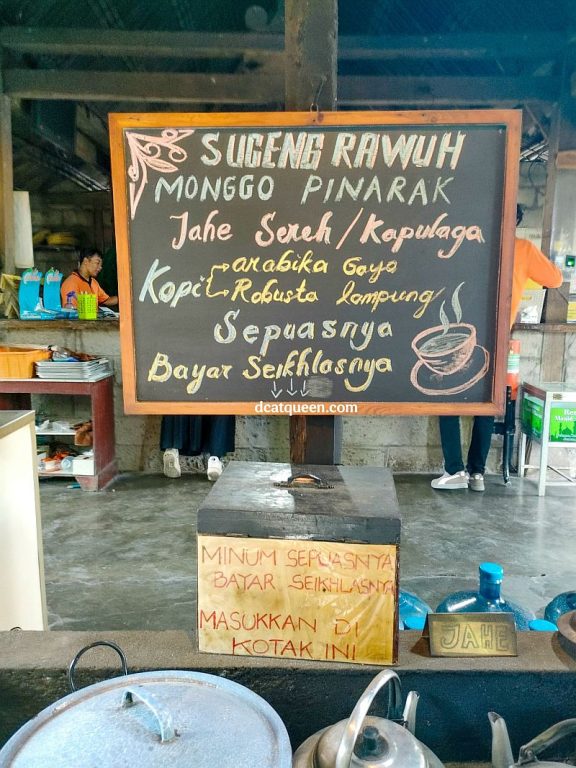 SUGENG RAWUH
MONGGO PINARAK
Jahe Sereh / Kapulaga
Kopi
arabika Gayo
Robusta lampung
Sepuasnya
Bayar Seikhlasnya
dcatqueen.com
MINUM SEPUASNYA
BAYAR SEIKHLASNYA
MASUKKAN DI
KOTAK INI
JAHE